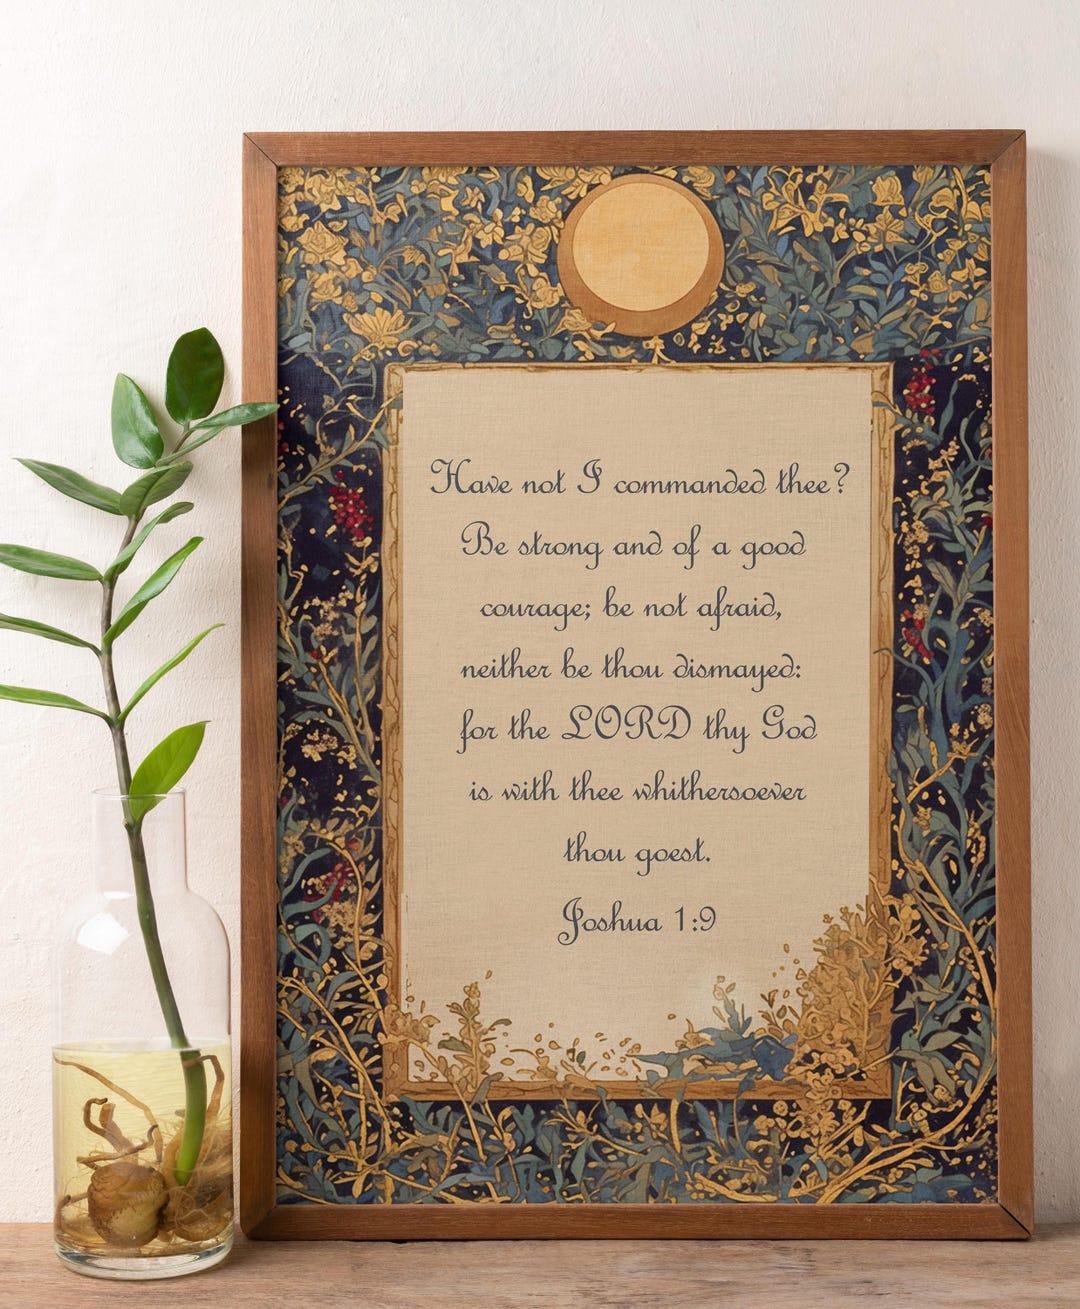 Have not I commanded thee?
Be strong and of a good
courage; be not afraid,
neither be thou dismayed:
for the LORD thy God
is with thee whithersoever
thou goest.
Joshua 1:9